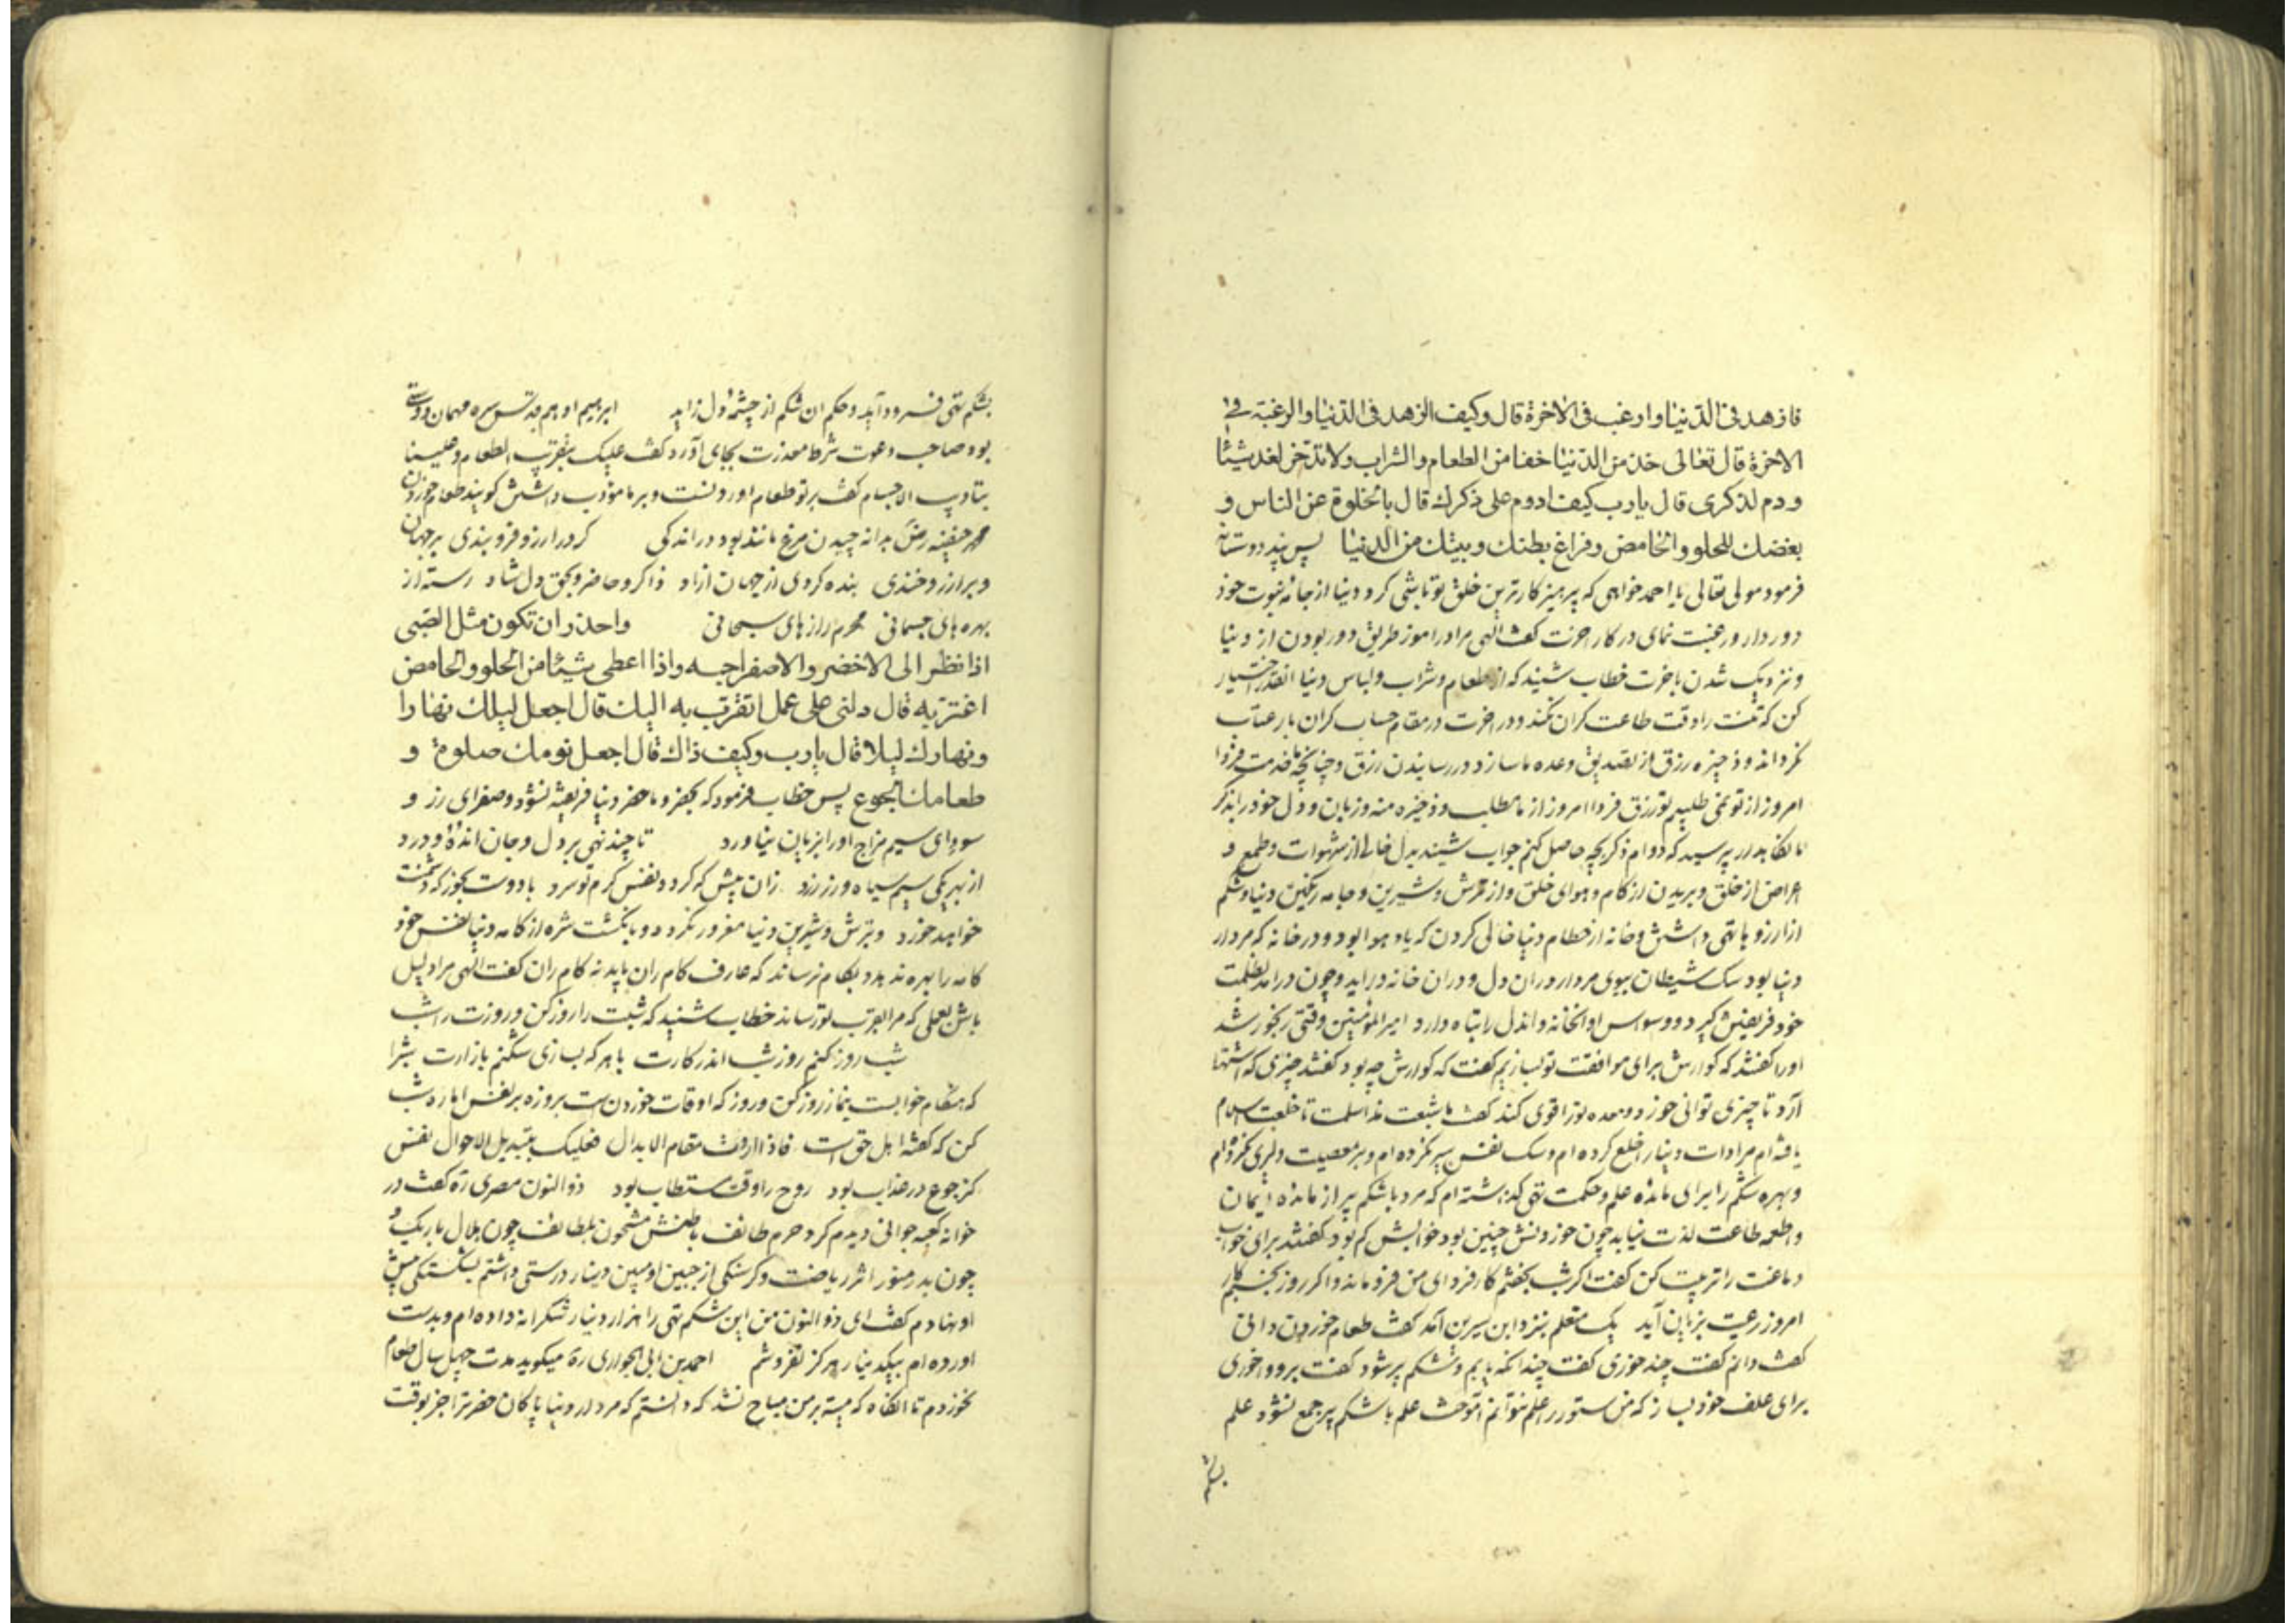 فازهد فی الدنیا وارغب فی الاخرة قال وکیف الزهد فی الدنیا والرغبة فی
الاخرة قال تعالی خذ من الدنیا خفا من الطعام والشراب ولا تدخر لغد شیئا
ودم لذکری قال یا رب کیف ادوم علی ذکرک قال بالخلوة عن الناس و
بغضک للحلو والحامض وفراغ بطنک وبیتک من الدنیا پس پند دوستانه
فرمود مولی تعالی یا احمد خواهی که پرهیزکارترین خلق تو باشی کرد دنیا از خانه خود
دور دار و رغبت نمای در کار اخرت کفت الهی مرا در اموز طریق دور بودن از دنیا
و نزدیک شدن باخرت خطاب شنید که از طعام و شراب و لباس دنیا انقدر اختیار
کن که تنت را وقت طاعت کران نکند و در اخرت در مقام حساب کران بار عتاب
نکرداند و ذخیره رزق از تصدیق وعده ما سازد در رسانیدن رزق و چنانچه خدمت فردا
امروز از تو نمی طلبیم تو رزق فردا امروز از ما مطلب و ذخیره منه و زبان و دل خود در ذکر
ما نکاهدار پرسید که دوام ذکر بچه حاصل کنم جواب شنید بدل خالی از شهوات و طمع و
اعراض از خلق و بریدن از کام و هوای خلق و از ترش و شیرین و جامه رنکین دنیا و شکم
از ارزوها تهی داشتن و خانه از حطام دنیا خالی کردن که یاد هوا بود و در خانه که مردار
دنیا بود سک شیطان ببوی مردار در ان دل و در ان خانه دراید و چون درامد بظلمت
خود فریفتش کیرد و وسواس او انخانه و اندل را تباه دارد امیر المؤمنین وقتی رنجور شد
اورا کفتند که کوارش برای موافقت تو بسازیم کفت که کوارش چه بود کفتند چیزی که اشتها
آرد تا چیزی توانی خورد و معده تو را قوی کند کفت ما شبعت منذ اسلمت تا خلعت اسلام
یافته ام مرادات دنیا را خلع کرده ام و سک نفس سیر نکرده ام و بر معصیت دلیری نکرده ام
و بهره شکم را برای مائده علم و حکمت تهی کذاشته ام که مرد با شکم پر از مائده ایمان
و اطعمه طاعت لذت نیابد چون خوردنش چنین بود خوابش کم بود کفتند برای خواب
دماغت را تربیت کن کفت اکر شب بخفتم کار فردای من فرو ماند و اکر روز بخسبم کار
امروز رعیت بزیان آید یک متعلم بنزد ابن سیرین آمد کفت طعام خوردن دانی
کفت دانم کفت چند خوری کفت چندانکه یابم و شکم پر شود کفت برو و اخوری
برای علف خود بساز که من ستور را علم نتوانم آموخت علم با شکم پر جمع نشود علم
بشکم
بشکم تهی فرود آید و حکم ان شکم از چشمه دل زاید ابرهیم ادهم قدس سره مهمان دوستی
بود صاحب دعوت شرط معذرت بجای آورد کفت علیک بتقریب الطعام وعلینا
بتادیب الاجسام کفت بر تو طعام اوردنست و بر ما مؤدب داشتن کویند طعام خوردن
محمد حنفیه رض بدانه چیدن مرغ مانند بود در اندکی کر در ارزو فرو بندی بر جهان
و بر ارز و خندی بنده کردی از جهان ازاد ذاکر و حاضر و بحق دل شاد رسته از
بهره های جسمانی محرم رازهای سبحانی واحذر ان تکون مثل الصبی
اذا نظر الی الاخضر والاصفر احبه واذا اعطی شیئا من الحلو والحامض
اغتر به قال دلنی علی عمل اتقرب به الیک قال اجعل لیلک نهارا
ونهارک لیلا قال یا رب وکیف ذاک قال اجعل نومک صلوة و
طعامک الجوع پس خطاب فرمود که بخضر و ماحضر دنیا فریفته نشود و صفرای زر و
سودای سیم مزاج اورا بزیان نیاورد تا چند نهی بر دل و جان انده و درد
از بهر یکی سیم سیاه و زر زرد زان پیش که کرد د نفس کرم تو سرد با دوست بخور که دشمنت
خواهد خورد و بترش و شیرین دنیا مغرور نکردد و بانکشت شره از کامه دنیا نفس خود
کامه را بهره ندهد و بکام نرساند که عارف کام ران باید نه کام ران کفت الهی مرا دلیل
باش بعملی که مرا بقرب تو رساند خطاب شنید که شبت را روز کن و روزت را شب
شب روز کنم روز شب اندر کارت با هر که بسازی شکنم بازارت شب را
که هنکام خوابست بنماز روز کن و روز که اوقات خوردن ست بروزه بر نفس اماره شب
کن که کفته اهل حق است فاذا اردت مقام الابدال فعلیک بتبدیل الاحوال نفس
کز جوع در عذاب بود روح را وقت مستطاب بود ذو النون مصری ره کفت در
خوانه کعبه جوانی دیدم کرد حرم طائف باطنش مشحون بلطائف چون هلال باریک و
چون بدر منور اثر ریاضت و کرسنکی از جبین او مبین دینار درستی داشتم بشکستکی پیش
او نهادم کفت ای ذو النون من این شکم تهی را هزار دینار شکرانه داده ام و بدست
اورده ام بیکدینار هرکز نفروشم احمد بن ابی الحواری ره میکوید مدت چهل سال طعام
نخوردم تا انکاه که میته بر من مباح نشد که دانستم که مردار دنیا پاکان حضرت را جز بوقت